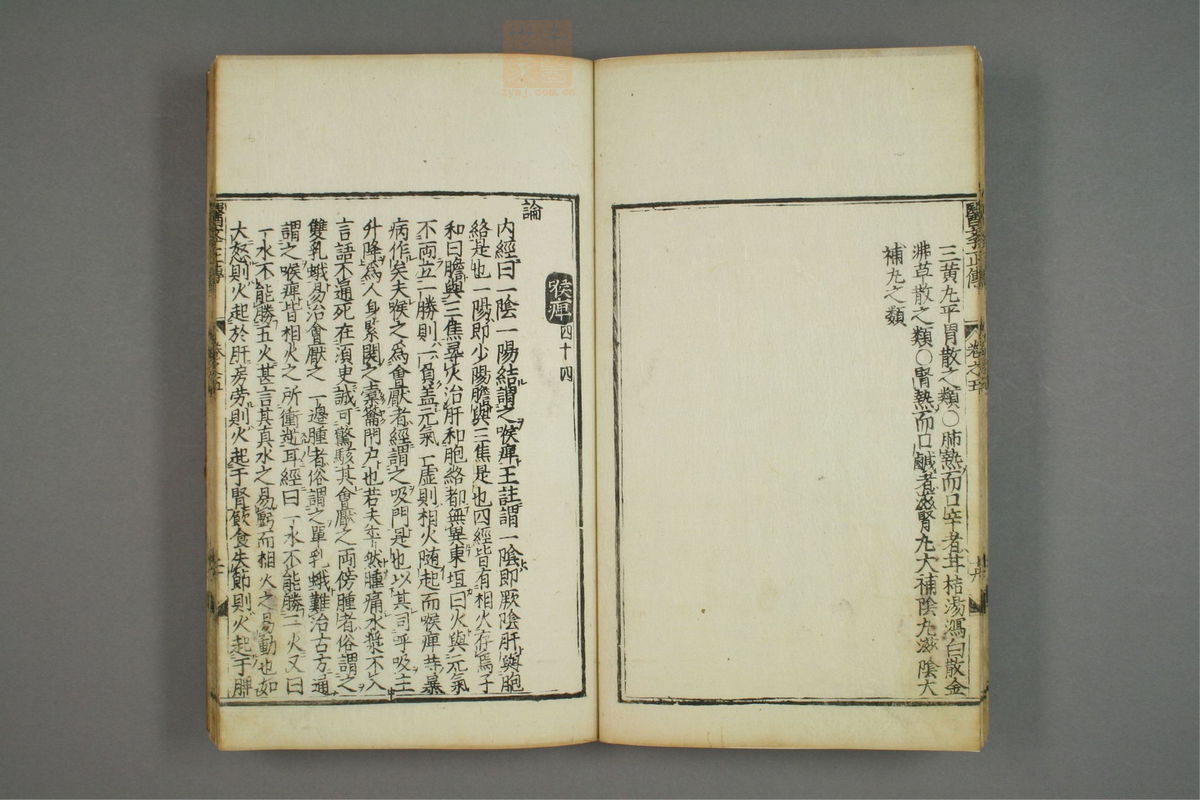 三黄丸平胃散之類○肺熱而口辛者甘桔湯瀉白散金
沸草散之類○腎熱而口鹹者滋腎丸大補陰丸滋陰大
補丸之類
醫學正傳
卷之五
喉痺 四十四
論
内經曰一陰一陽結謂之喉痺王註謂一陰即厥陰肝與胞
絡是也一陽即少陽膽與三焦是也四經皆有相火存焉子
和曰膽與三焦尋火治肝和胞絡都無異東垣曰火與元氣
不両立一勝則一負盖元氣一虚則相火随起而喉痺䒭暴
病作矣夫喉之爲會厭者經謂之吸門是也以其司呼吸主
升降爲人身緊関之橐籥門户也若夫卒然腫痛水漿不入
言語不通死在須臾誠可驚駭其會厭之両傍腫者俗謂之
雙乳蛾易治會厭之一邊腫者俗謂之單乳蛾難治古方通
謂之喉痺皆相火之所衝逆耳經曰一水不能勝二火又曰
一水不能勝五火甚言其真水之易虧而相火之易動也如
大怒則火起於肝房劳則火起于腎飲食失節則火起于脾
醫學正傳
zysj.com.cn